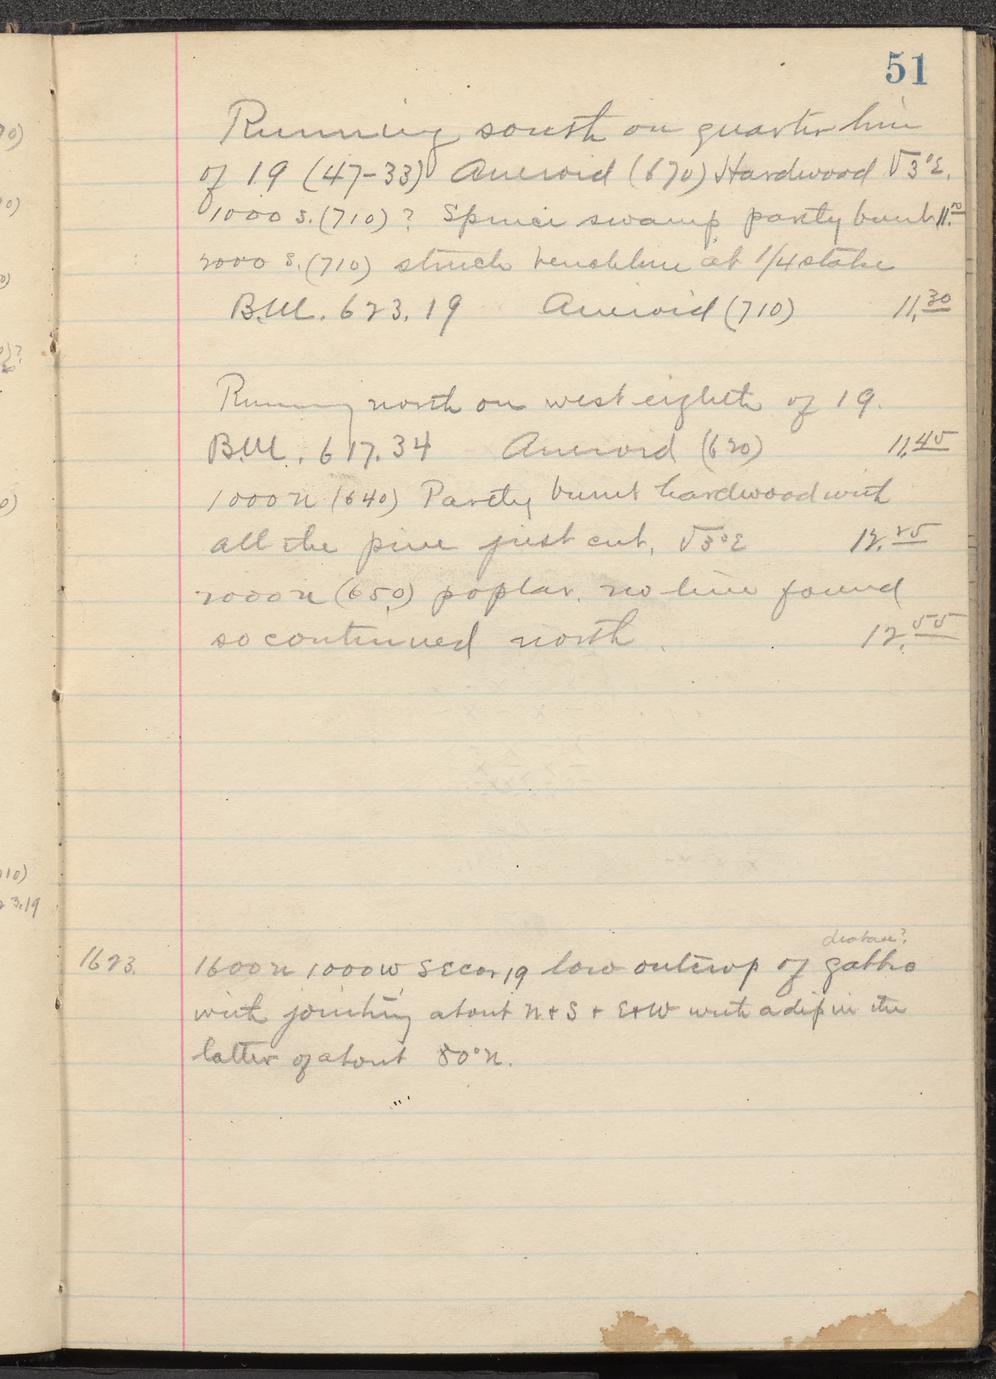 51
Running south on quarter line
of 19 (47-33) Aneroid (670) Hardwood √3°E.
1000 S. (710) ? Spruce swamp partly burnt 11.20
2000 S. (710) struck benchline at 1/4 stake
B.M. 623.19 Aneroid (710) 11.30
Running north on west eighth of 19.
B.M. 617.34 Aneroid (620) 11.45
1000 N (640) Partly burnt hardwood with
all the pine just cut, √3°E 12.25
2000 N (650) poplar. no line found
so continued north. 12.55
diabase?
1623. 1600 N 1000 W SE cor, 19 low outcrop of gabbro
with jointing about N + S + E + W with a dip in the
latter of about 80° N.
70)
70)
0)
0)?
0)
10)
23.19